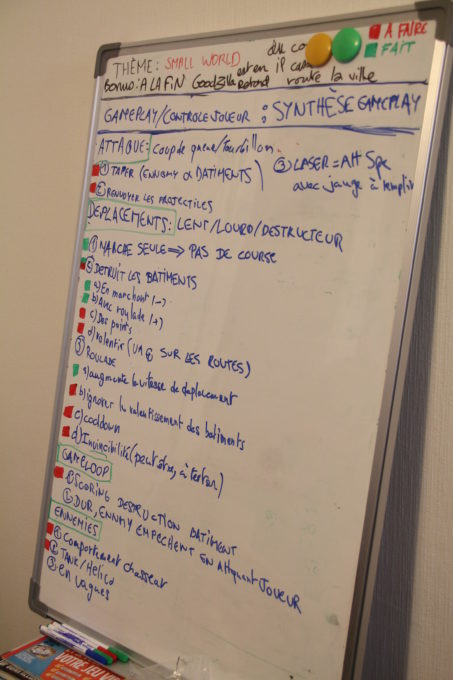 A FAIRE
FAIT
THÈME: SMALL WORLD
BONUS: A LA FIN Godzilla est en
route la ville
GAMEPLAY/CONTROLE JOUEUR : SYNTHÈSE GAMEPLAY
ATTAQUE: Coup de queue/tourbillon.
① TAPER (ENNEMY OU BATIMENTS)
② RENVOYER LES PROJECTILES
③ LASER = ATT Spé
avec jauge à remplir
DEPLACEMENTS: LENT/LOURD/DESTRUCTEUR
① MARCHE SEULE => PAS DE COURSE
② DÉTRUIT LES BATIMENTS
a) En marchant (-)
b) Avec roulade (+)
c) Des points
d) ralentir ( SUR LES ROUTES)
③ ROULADE
a) augmente la vitesse de déplacement
b) ignorer le ralentissement des batiments
c) cooldown
d) Invincibilité (peut être, à tester)
GAMELOOP
① SCORING DESTRUCTION BATIMENT
DUR, ENNMY EMPECHENT EN Attaquant JOUEUR
ENNEMIES
① Comportement chasseur
② TANK/Hélico
③ en vagues
VOTRE JEU